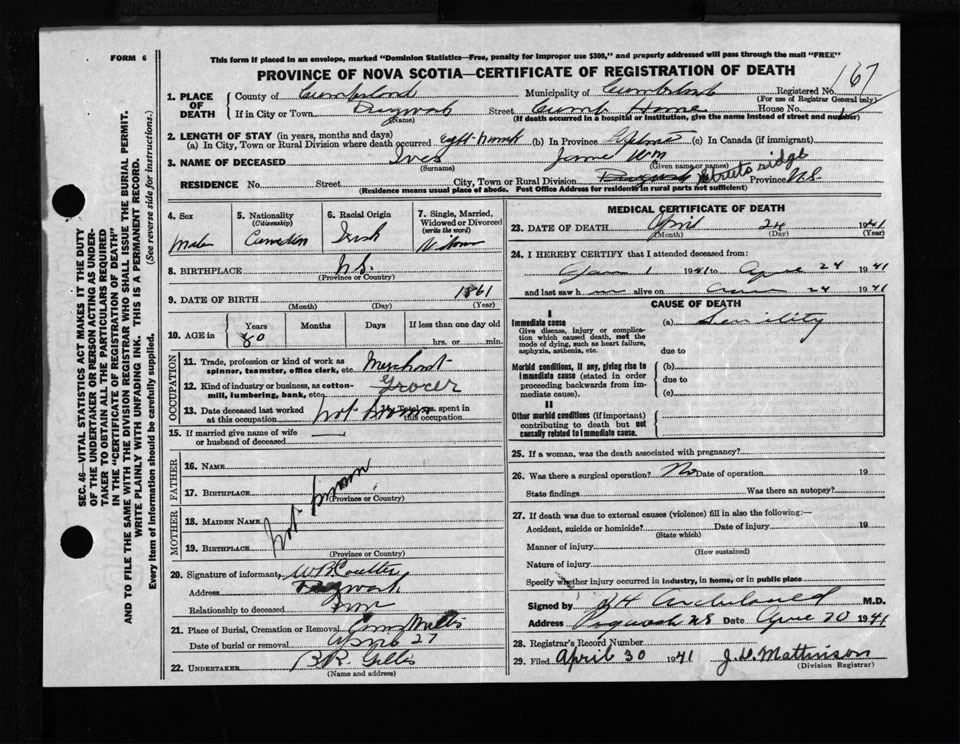 FORM 6
This form if placed in an envelope, marked "Dominion Statistics—Free, penalty for improper use $300," and properly addressed will pass through the mail "FREE"
PROVINCE OF NOVA SCOTIA—CERTIFICATE OF REGISTRATION OF DEATH
167
1. PLACE OF DEATH
County of Cumberland Municipality of Cumberland Registered No.
(For use of Registrar General only)
If in City or Town Pugwash Street Cumb Home House No.
(Name) (If death occurred in a hospital or institution, give the name instead of street and number)
2. LENGTH OF STAY (in years, months and days)
(a) In City, Town or Rural Division where death occurred eight months (b) In Province (c) In Canada (if immigrant)
3. NAME OF DECEASED Ives James Wm
(Surname) (Given name or names)
RESIDENCE No. Street City, Town or Rural Division Pugwash Streets ridge Province N.S.
(Residence means usual place of abode. Post Office Address for residents in rural parts not sufficient)
4. Sex
Male
5. Nationality (Citizenship)
Canadian
6. Racial Origin
Irish
7. Single, Married, Widowed or Divorced (write the word)
Widower
8. BIRTHPLACE N.S.
(Province or Country)
9. DATE OF BIRTH 1861
(Month) (Day) (Year)
10. AGE in Years Months Days If less than one day old
80 hrs. or min.
OCCUPATION
11. Trade, profession or kind of work as spinner, teamster, office clerk, etc. Merchant
12. Kind of industry or business, as cotton-mill, lumbering, bank, etc. Grocer
13. Date deceased last worked at this occupation not known Total yrs. spent in this occupation
15. If married give name of wife or husband of deceased
FATHER
16. NAME
17. BIRTHPLACE
(Province or Country)
MOTHER
18. MAIDEN NAME
not known
19. BIRTHPLACE
(Province or Country)
20. Signature of informant
Address Pugwash
Relationship to deceased
21. Place of Burial, Cremation or Removal Mills
Date of burial or removal April 27
22. UNDERTAKER
(Name and address)
MEDICAL CERTIFICATE OF DEATH
23. DATE OF DEATH April 24 1941
(Month) (Day) (Year)
24. I HEREBY CERTIFY that I attended deceased from:
Jan 1 1941 to April 24 1941
and last saw h im alive on 24 1941
CAUSE OF DEATH
I
Immediate cause
Give disease, injury or complication which caused death, not the mode of dying, such as heart failure, asphyxia, asthenia, etc.
(a) Senility
due to
Morbid conditions, if any, giving rise to immediate cause (stated in order proceeding backwards from immediate cause).
(b)
due to
(c)
II
Other morbid conditions (if important) contributing to death but not causally related to immediate cause.
25. If a woman, was the death associated with pregnancy?
26. Was there a surgical operation? No Date of operation 19
State findings Was there an autopsy?
27. If death was due to external causes (violence) fill in also the following:—
Accident, suicide or homicide? Date of injury 19
(State which)
Manner of injury
(How sustained)
Nature of injury
Specify whether injury occurred in industry, in home, or in public place
Signed by Archibald M.D.
Address Pugwash NS Date April 1941
28. Registrar's Record Number
29. Filed April 30 1941 J. D. Mattinson
(Division Registrar)
SEC. 46—VITAL STATISTICS ACT MAKES IT THE DUTY
OF THE UNDERTAKER OR PERSON ACTING AS UNDER-
TAKER TO OBTAIN ALL THE PARTICULARS REQUIRED
IN THE "CERTIFICATE OF REGISTRATION OF DEATH"
AND TO FILE THE SAME WITH THE DIVISION REGISTRAR WHO SHALL ISSUE THE BURIAL PERMIT.
WRITE PLAINLY WITH UNFADING INK. THIS IS A PERMANENT RECORD.
Every item of information should be carefully supplied. (See reverse side for instructions.)